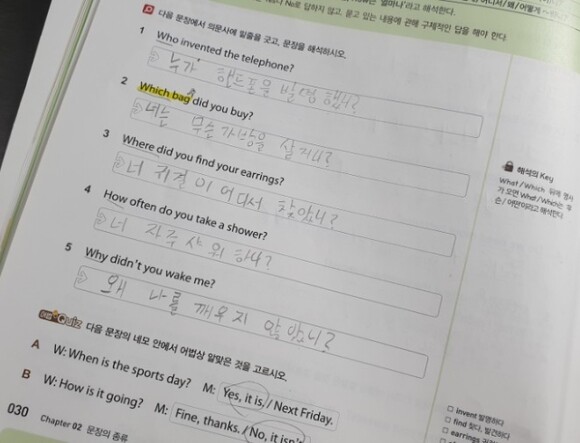 No로 답하지 않고, 묻고 있는 내용에 관해 구체적인 답을 해야 한다.
D 다음 문장에서 의문사에 밑줄을 긋고, 문장을 해석하시오.
1 Who invented the telephone?
누가 핸드폰을 발명 했니?
2 Which bag did you buy?
너는 무슨 가방을 샀니?
3 Where did you find your earrings?
너 귀걸이 어디서 찾았니?
4 How often do you take a shower?
너 자주 샤워 하니?
5 Why didn't you wake me?
왜 나를 깨우지 않았니?
해석의 Key
What / Which 뒤에 명사
가 오면 What / Which는 '무
슨 / 어떤'이라고 해석한다.
Quiz 다음 문장의 네모 안에서 어법상 알맞은 것을 고르시오.
A W: When is the sports day? M: Yes, it is. / Next Friday.
B W: How is it going? M: Fine, thanks. / No, it isn't
□ invent 발명하다
□ find 찾다, 발견하다
□ earrings
030 Chapter 02 문장의 종류